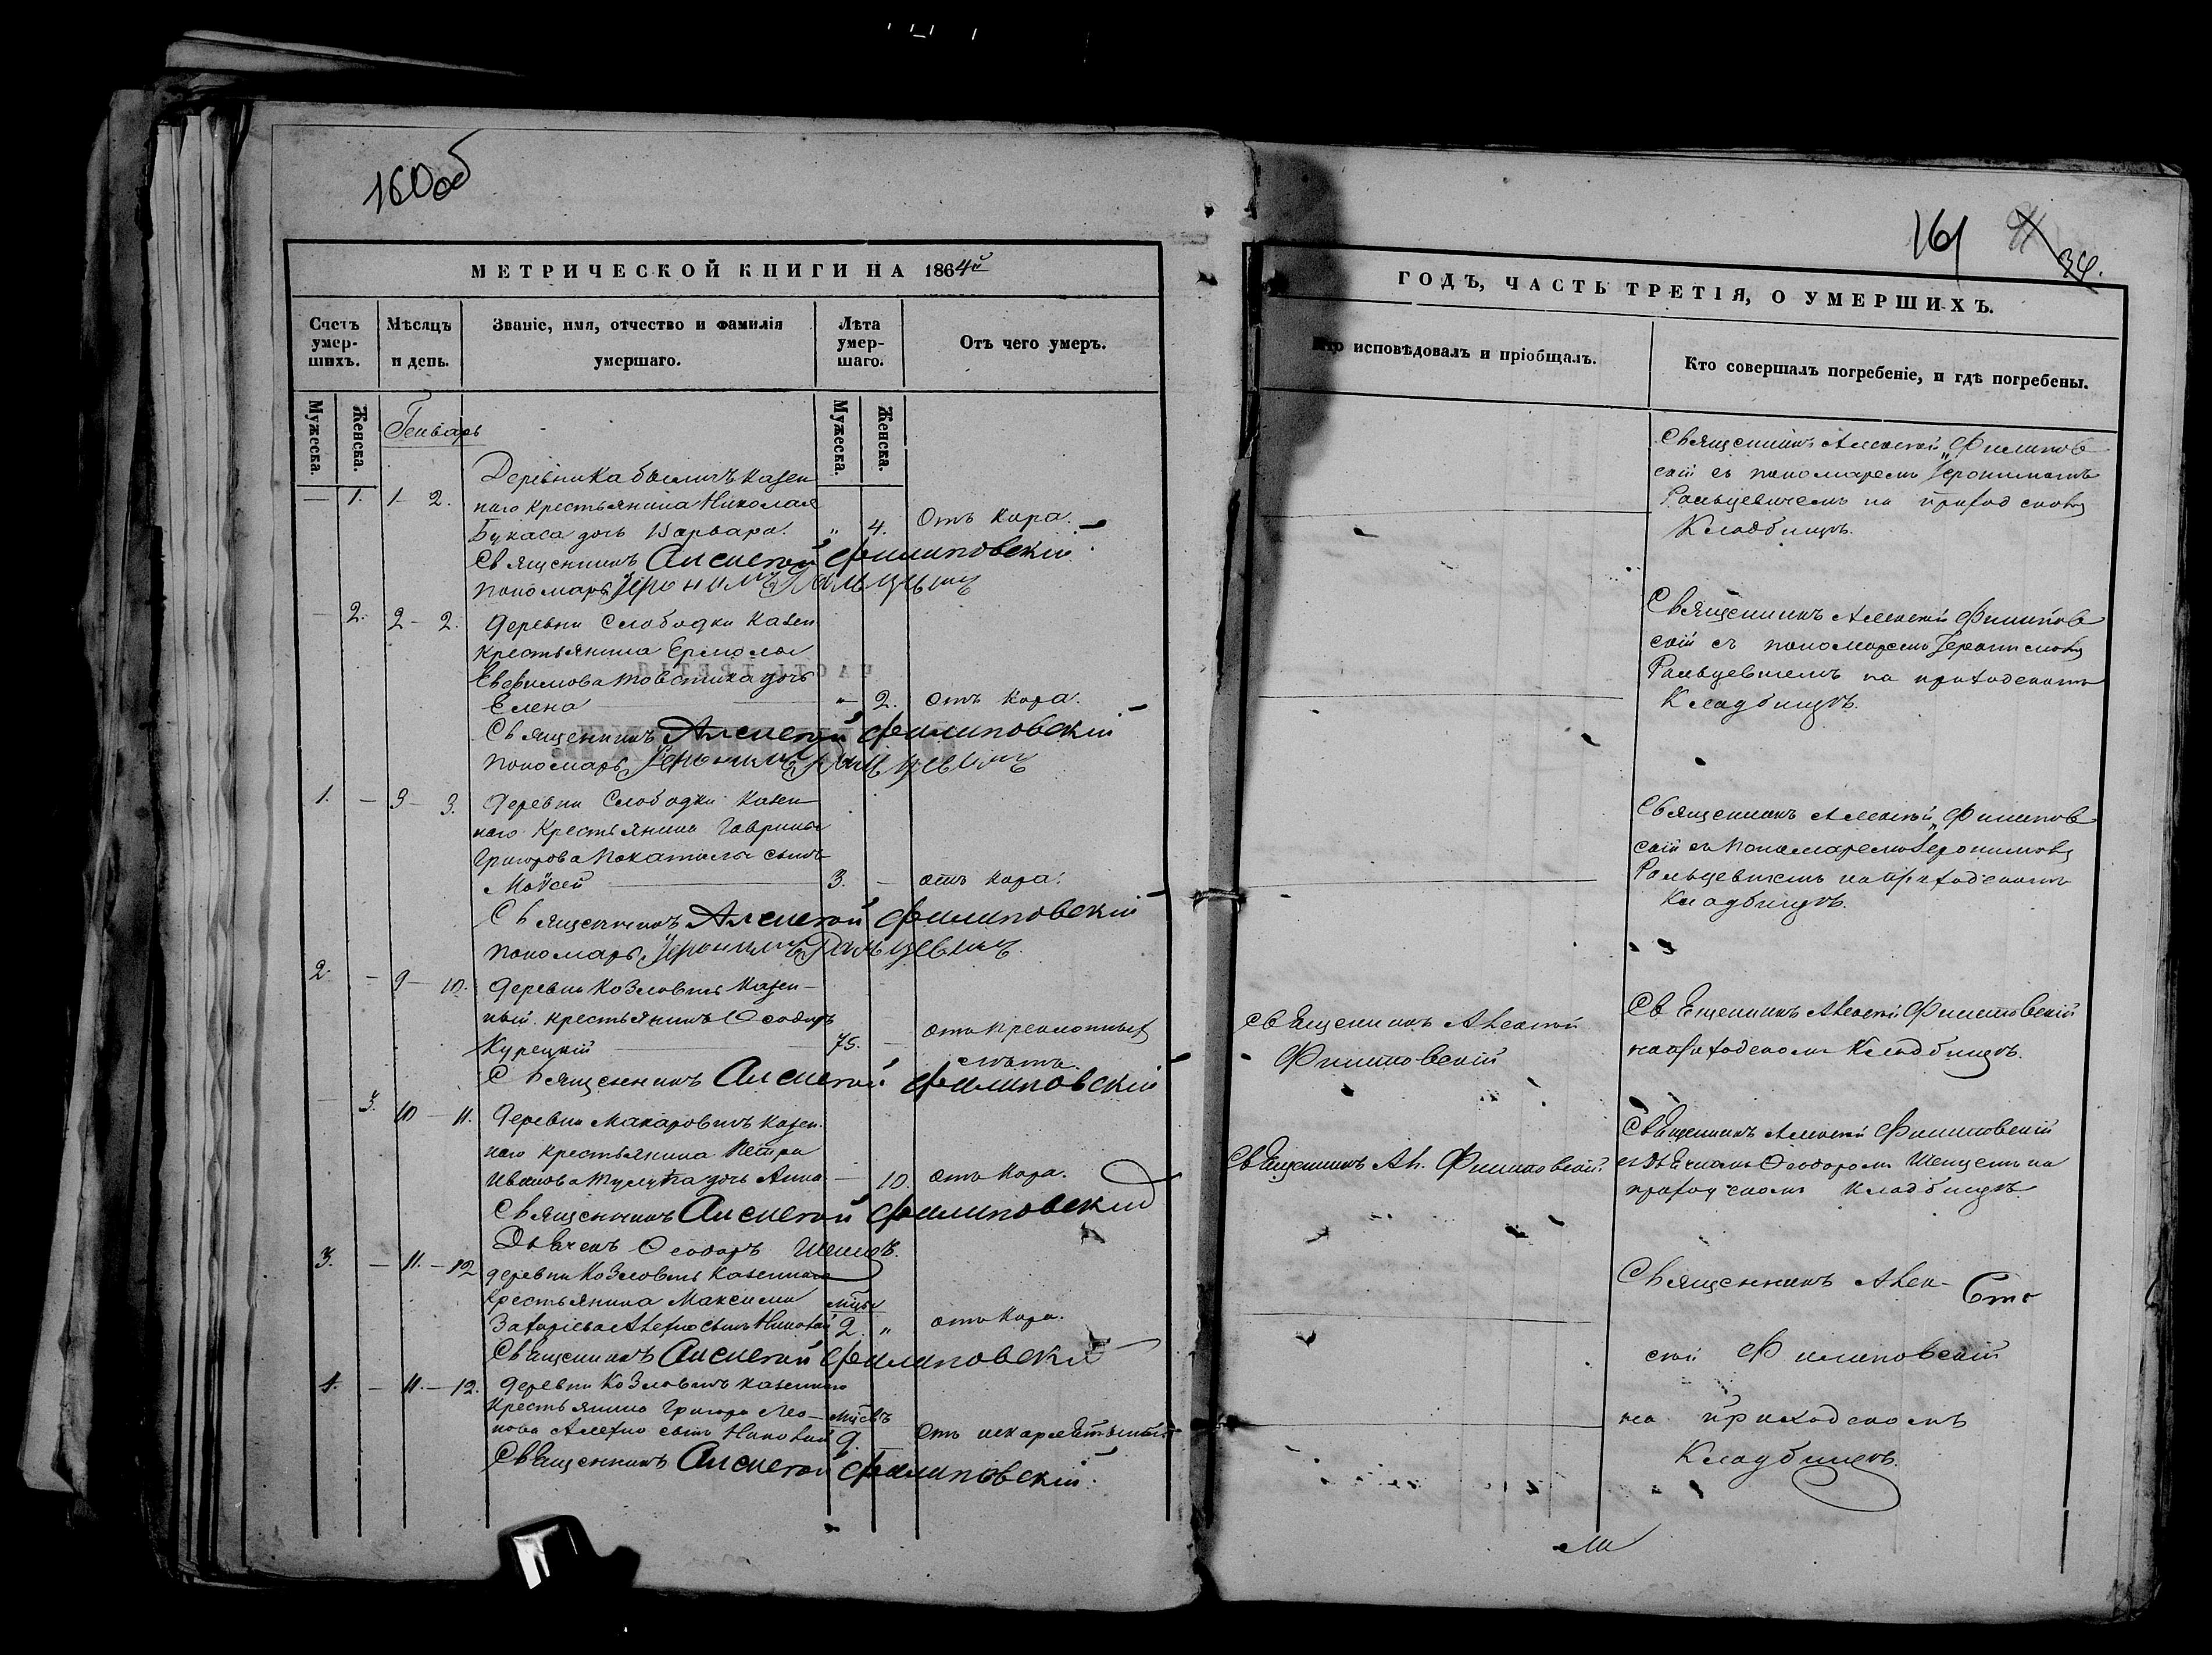 160об
МЕТРИЧЕСКОЙ КНИГИ НА 1864й
Счетъ умер-шихъ.
Мѣсяцъ и день.
Званіе, имя, отчество и фамилія умершаго.
Лѣта умер-шаго.
Отъ чего умеръ.
Мужеска.
Женска.
Генварь
Мужеска.
Женска.
Казен
— 1. 1- 2. наго крестьянина Николая
Букаса дочь Варвара. „ 4. Отъ кора.
Священникъ Алексей Филиповскій
Пономарь Іеронимъ
— 2. 2- 2. Деревни Слободки Казен
крестьянина Ермолы
Евфимова дочь
Елена — 2. Отъ кора.
Священникъ Алексей Филиповскій
Пономарь Іеронимъ
1. — 3- 3. Деревни Слободки Казен
наго Крестьянина Гаврилы
Григорова сынъ
Моѵсей 3. — отъ кора.
Священникъ Алексей Филиповскій
Пономарь Іеронимъ
2. — 9- 10. Деревни Козловичъ Казен-
ный крестьянинъ Ѳеодоръ
Курецкій 75. — отъ преклонныхъ
лѣтъ.
Священникъ Алексей Филиповскій
— 3. 10- 11. Деревни Макаровичъ Казен
наго крестьянина Петра
Иванова дочь Анна — 10. отъ кора.
Священникъ Алексей Филиповскій
Дьячекъ Ѳеодоръ
3. — 11.- 12 деревни Козловичъ Казеннаго
Крестьянина Максима
сынъ Николай 2 „ отъ кора.
Священникъ Алексей Филиповскій
4. — 11.- 12. Деревни Козловичъ казеннаго
Крестьянина Григора Лео-
нова сынъ Николай 9. отъ
Священникъ Алексей Филиповскій.
161
34.
ГОДЪ, ЧАСТЬ ТРЕТІЯ, О УМЕРШИХЪ.
Кто исповѣдовалъ и пріобщалъ.
Кто совершалъ погребеніе, и гдѣ погребены.
Священникъ Алексей Филипов
скій съ пономаремъ Іеронимомъ
Ральцевичемъ на приходскомъ
Кладбищѣ.
Священникъ Алексей Филипов
скій съ пономаремъ Іеронимомъ
Ральцевичемъ на приходскомъ
Кладбищѣ.
Священникъ Алексей Филипов
скій съ Пономаремъ Іеронимомъ
Ральцевичемъ на приходскомъ
Кладбищѣ.
Священникъ Алексей
Филиповскій
Священникъ Алексей Филиповскій
на приходскомъ Кладбищѣ.
Священникъ Ал. Филиповскій.
Священникъ Алексей Филиповскій
съ Дьячкомъ Ѳеодоромъ на
приходскомъ Кладбищѣ.
Священникъ Алек-
сій Филиповскій
на приходскомъ
Кладбищѣ.